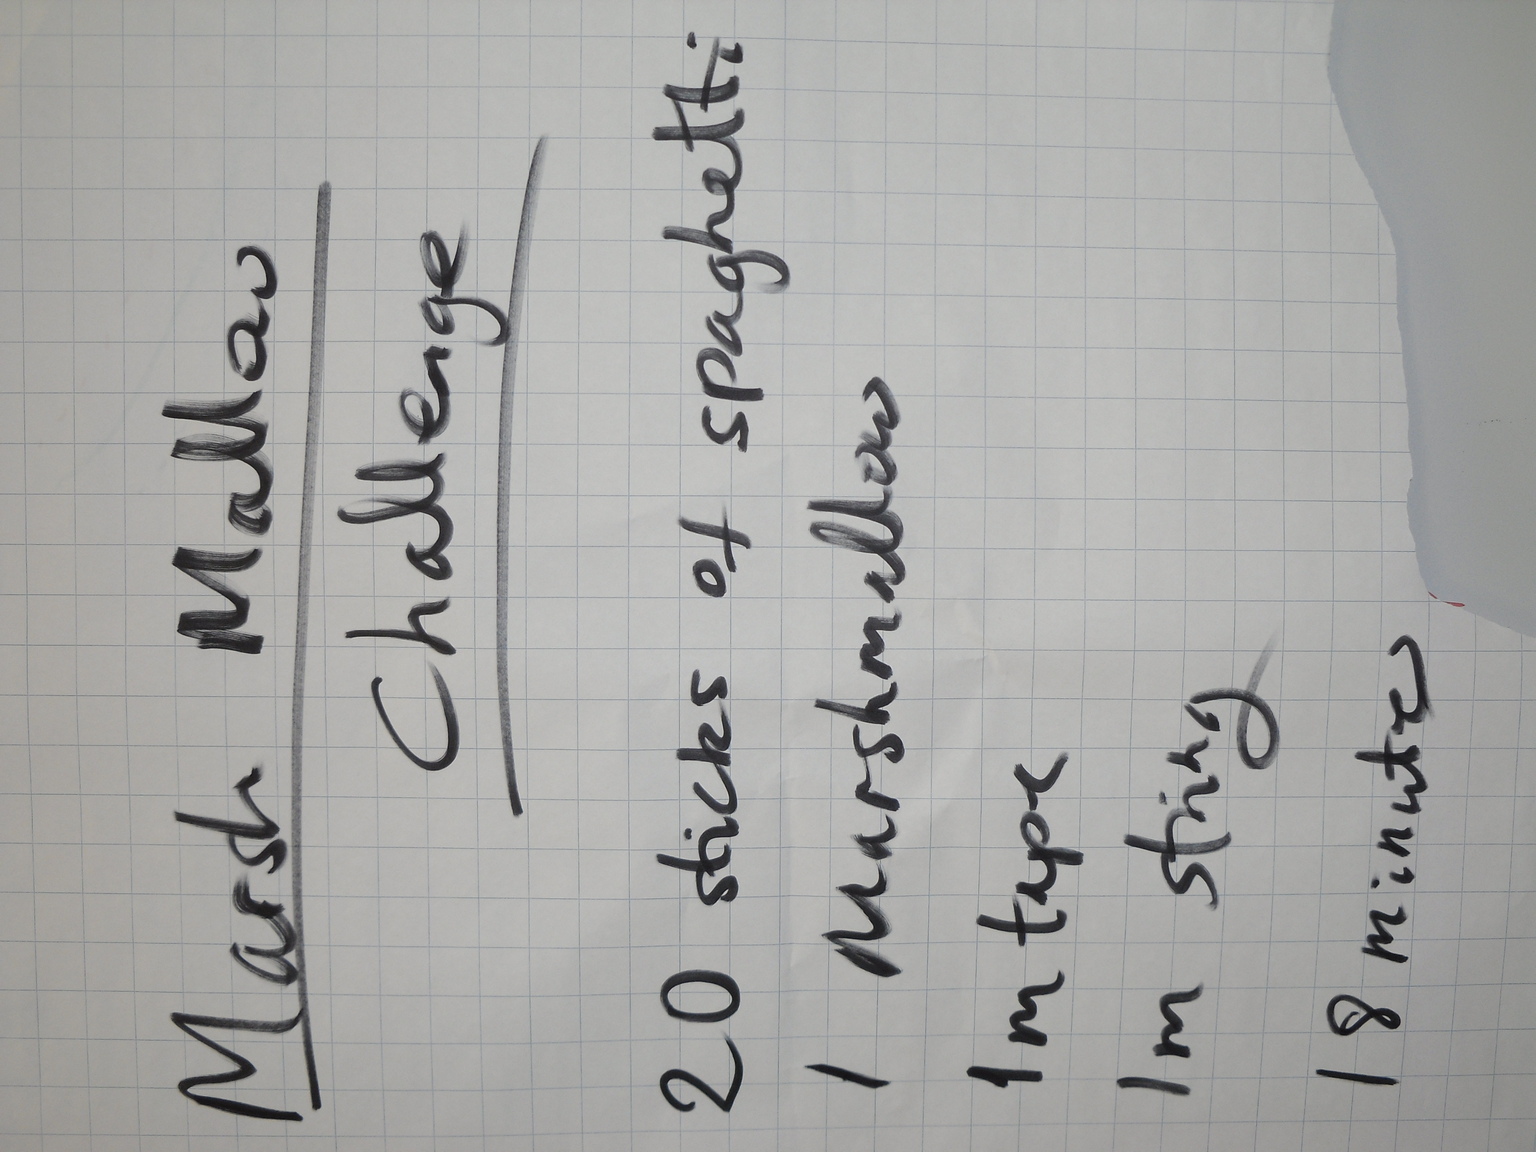 Marsh Mallow
Challenge
20 sticks of spaghetti
1 Marshmallow
1m tape
1m string
18 minutes